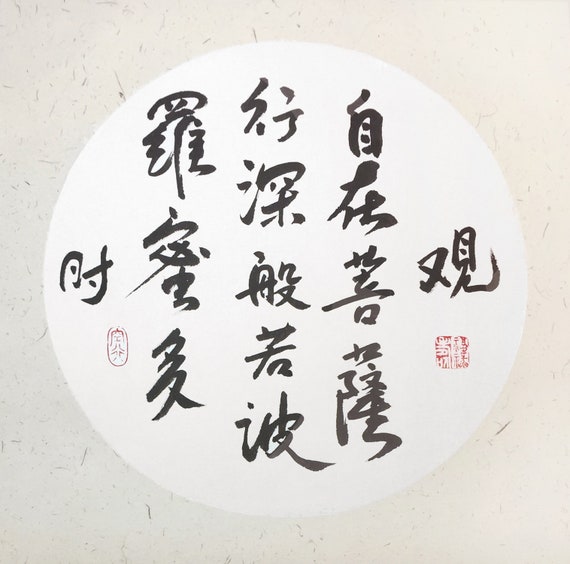 观
自在菩薩
行深般若波
羅蜜多
时